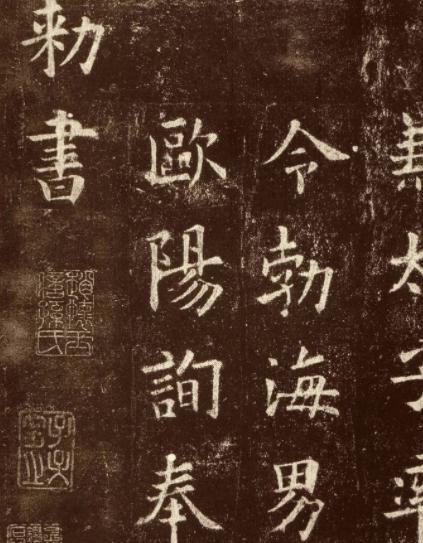 兼太子率
令勃海男
歐陽詢奉
勑書